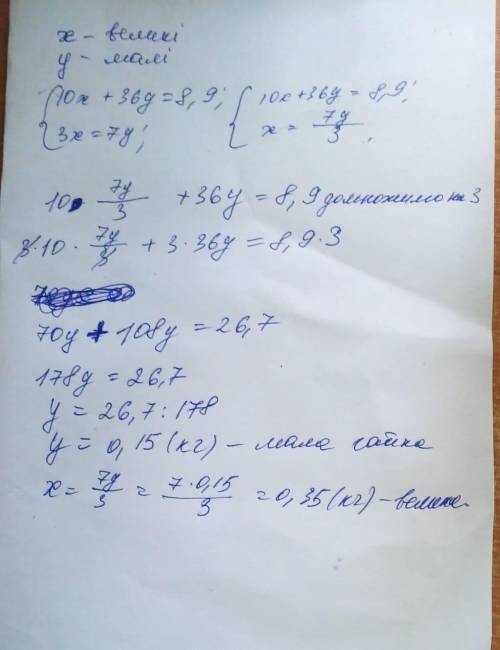 x - великі
y - малі
{10x + 36y = 8,9; {10x + 36y = 8,9;
3x = 7y; x = 7y/3.
10 · 7y/3 + 36y = 8,9 домножимо на 3
3 · 10 · 7y/3 + 3 · 36y = 8,9 · 3
70y + 108y = 26,7
178y = 26,7
y = 26,7 : 178
y = 0,15 (кг) - мала гайка
x = 7y/3 = 7·0,15/3 = 0,35 (кг) - велика